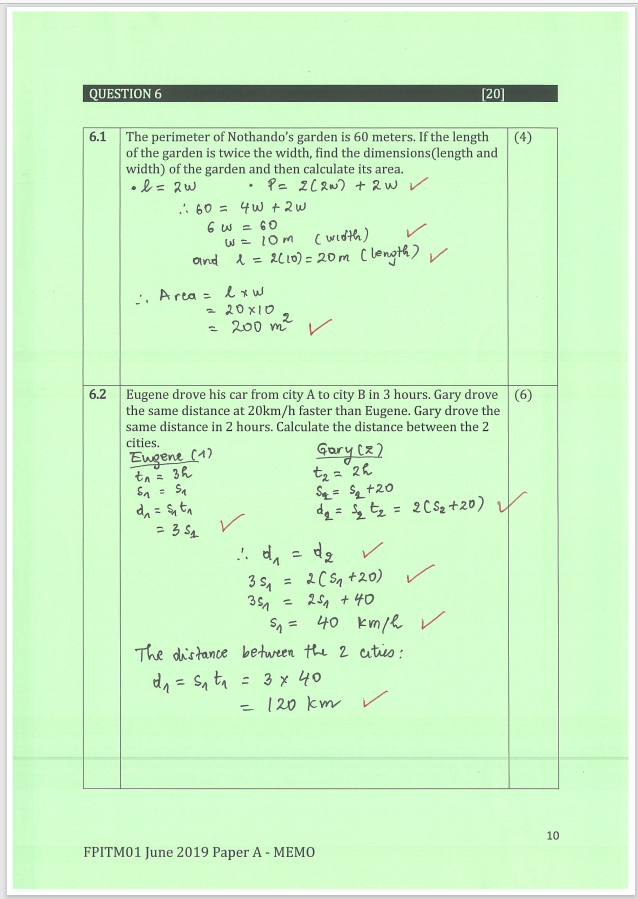 QUESTION 6 [20]
6.1 The perimeter of Nothando's garden is 60 meters. If the length (4)
of the garden is twice the width, find the dimensions(length and
width) of the garden and then calculate its area.
• l = 2w • P = 2(2w) + 2w ✓
∴ 60 = 4w + 2w
6w = 60
w = 10 m (width) ✓
and l = 2(10) = 20 m (length) ✓
∴ Area = l × w
= 20 × 10
= 200 m² ✓
6.2 Eugene drove his car from city A to city B in 3 hours. Gary drove (6)
the same distance at 20km/h faster than Eugene. Gary drove the
same distance in 2 hours. Calculate the distance between the 2
cities.
Eugene (1) Gary (2)
t₁ = 3h t₂ = 2h
s₁ = s₁ s₂ = s₂ + 20
d₁ = s₁t₁ d₂ = s₂ t₂ = 2(s₂ + 20) ✓
= 3 s₁ ✓
∴ d₁ = d₂ ✓
3s₁ = 2(s₁ + 20) ✓
3s₁ = 2s₁ + 40
s₁ = 40 km/h ✓
The distance between the 2 cities:
d₁ = s₁ t₁ = 3 × 40
= 120 km ✓
10
FPITM01 June 2019 Paper A - MEMO